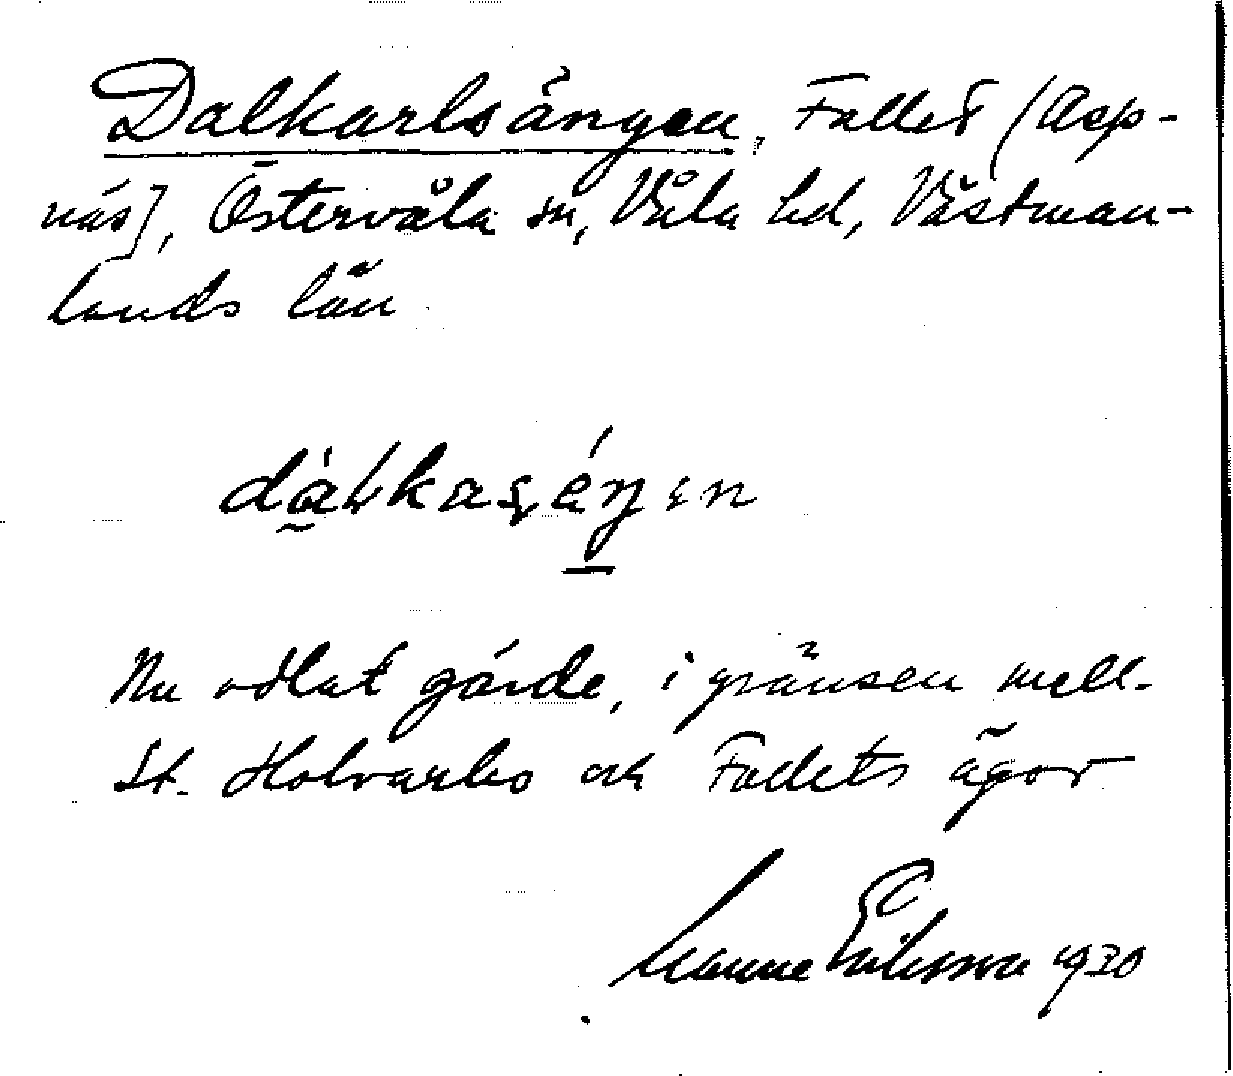 Dalkarlsängen, Fallet (Asp-
näs), Östervåla sn, Våla hd, Västman-
lands län
Nu odlat gärde, i gränsen mell.
St. Holvarbo och Fallets ägor
Manne Eriksson 1930